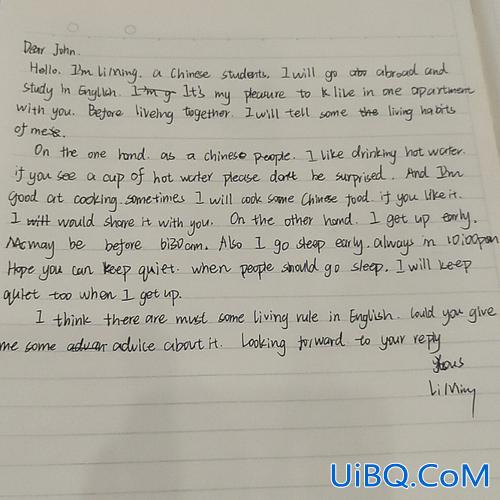 Dear John.
Hello. I'm LiMing. a Chinese students. I will go abroad and
study in English. It's my pleasure to live in one apartment
with you. Before liveing together. I will tell some living habits
of me.
On the one hand. as a chinese people. I like drinking hot water.
if you see a cup of hot water please don't be surprised. And I'm
good at cooking. sometimes I will cook some Chinese food. if you like it.
I would share it with you. On the other hand. I get up early.
may be before 6:30am. Also I go sleep early. always in 10:00pm
Hope you can keep quiet. when people should go sleep. I will keep
quiet too when I get up.
I think there are must some living rule in English. Could you give
me some advice about it. Looking forward to your reply
yours
LiMing
UiBQ.CoM